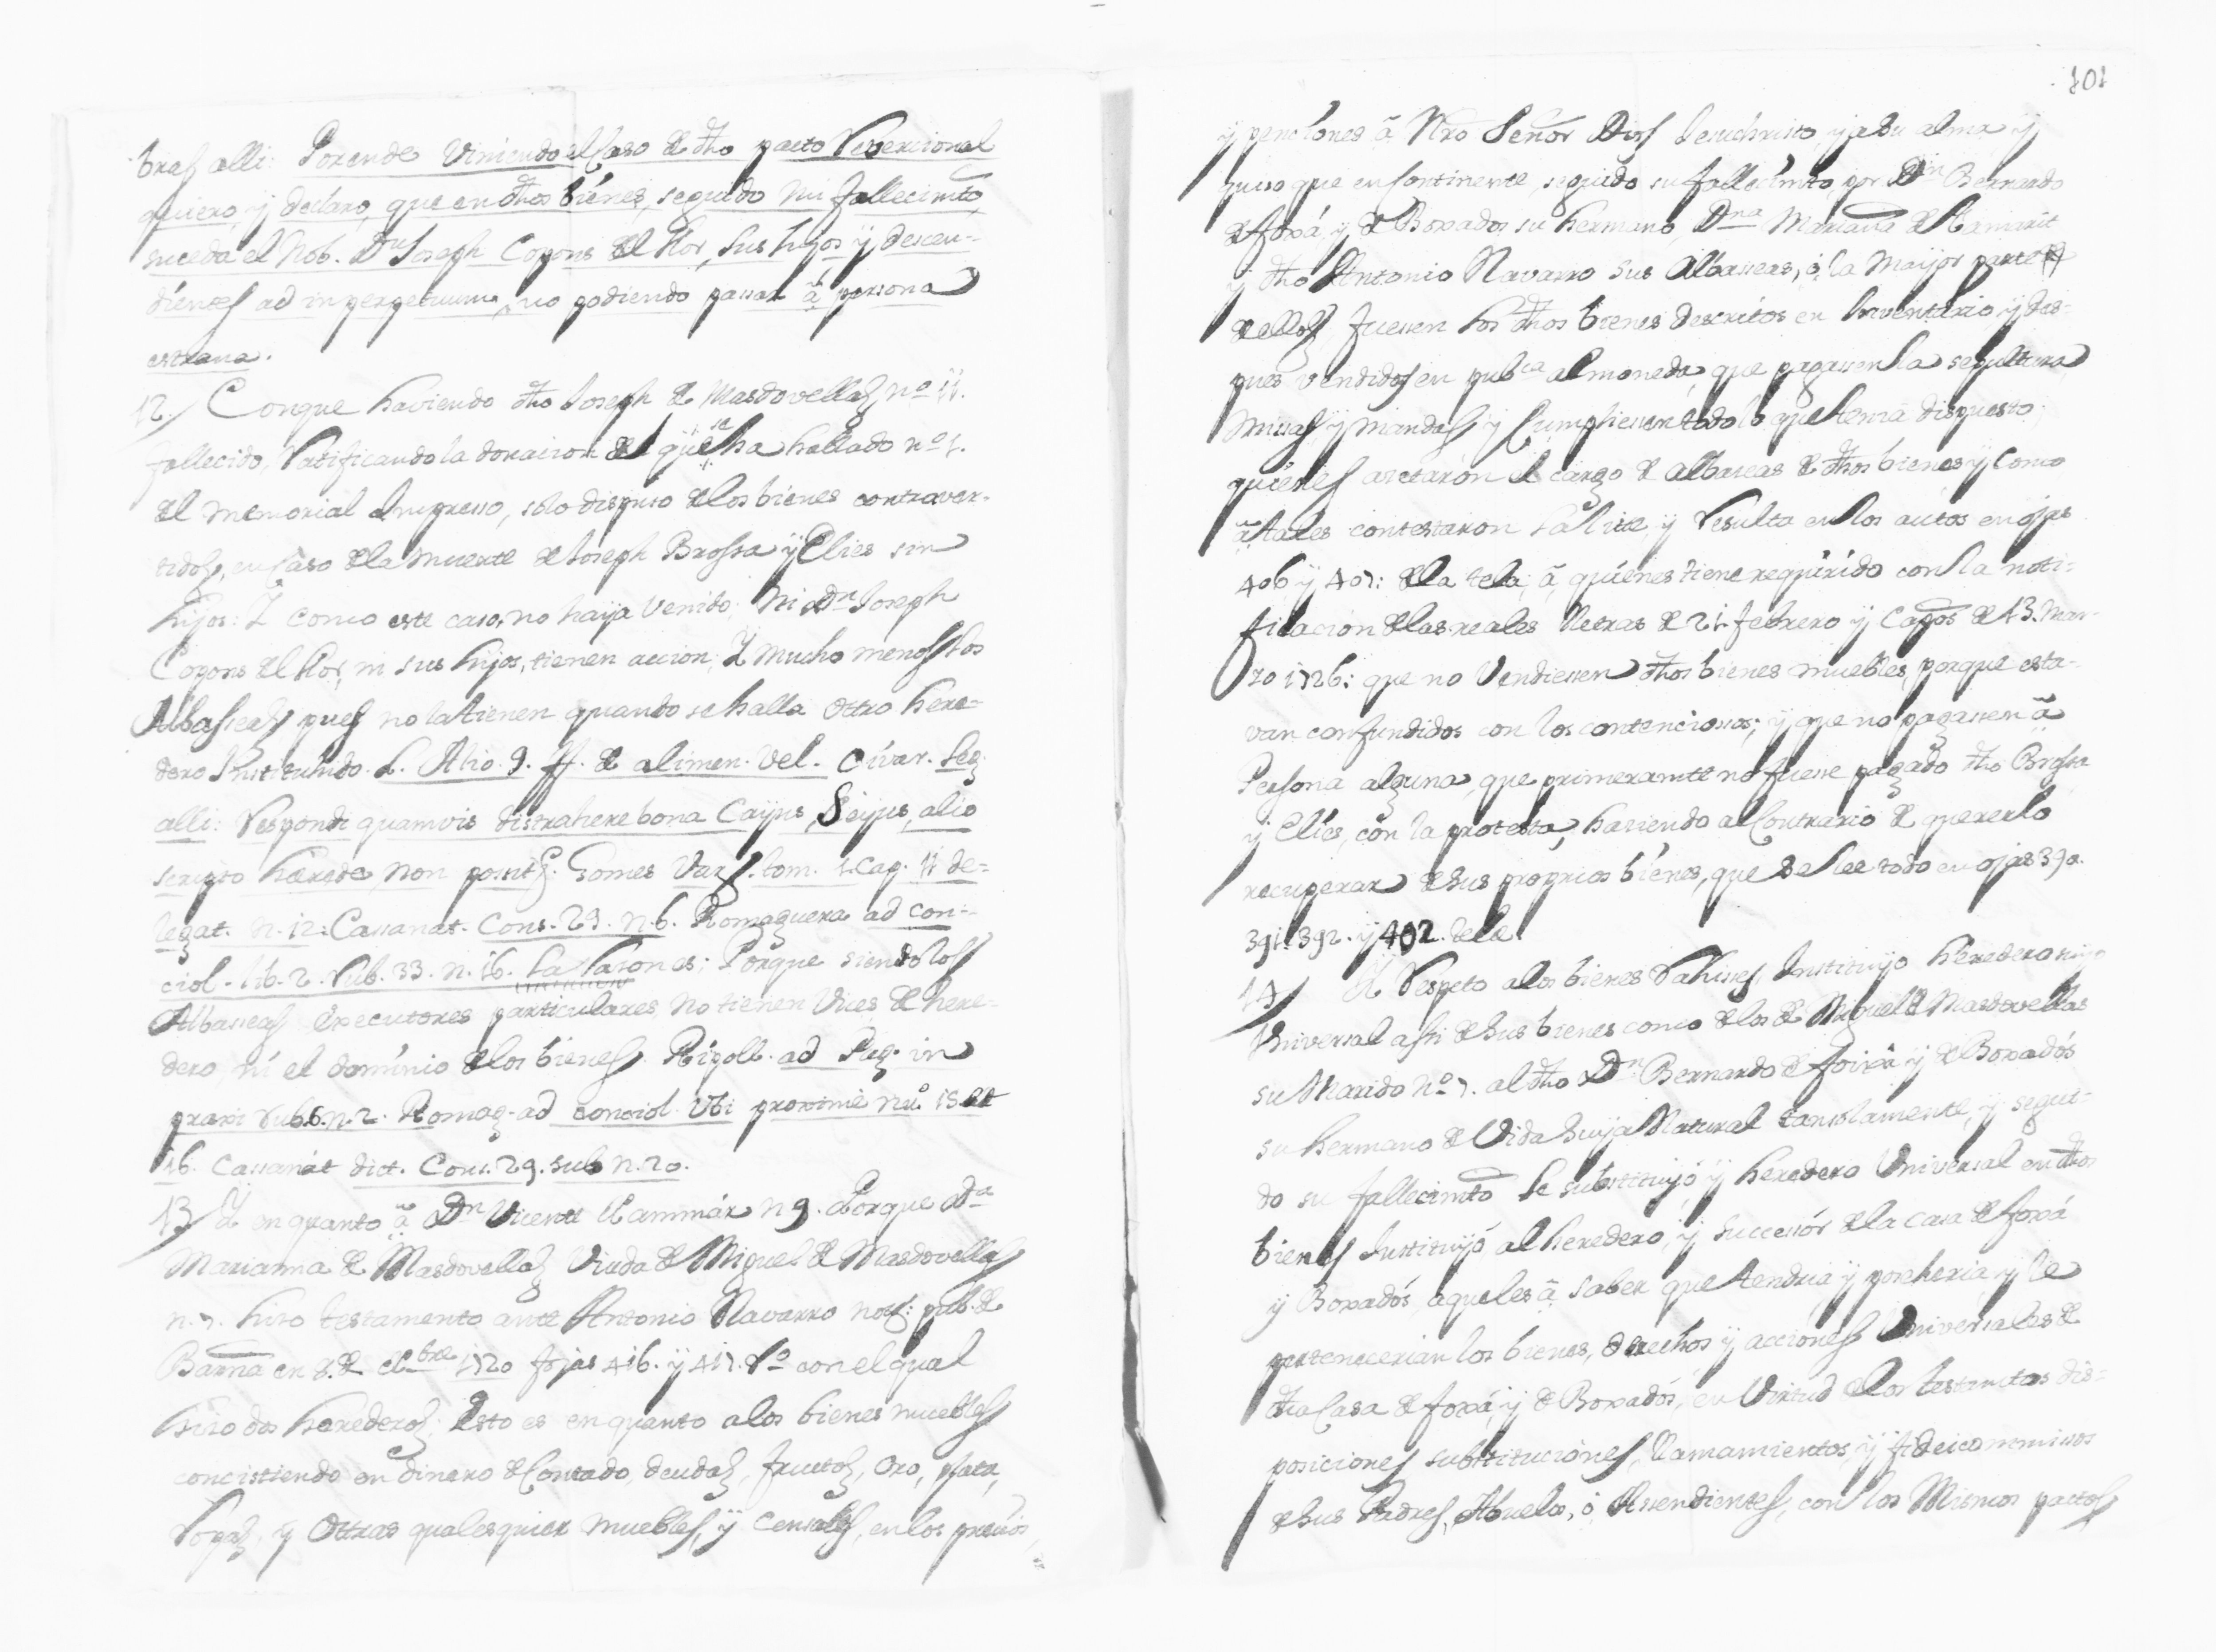 bras alli: Porende Viniendo el Caso de dho pacto Reversional
quiero, y declaro, que en dhos bienes, seguido mi fallecimto,
suceda el Nob. Dn Joseph Copons del Llor, sus hijos y descen-
dientes ad in perpetuum, no podiendo passar â persona
estrana.
12. Conque haviendo dho Joseph de Masdovellas nº 11.
fallecido, Ratificando la donacion del que se ha hallado nº 1.
del Memorial Impresso, solo dispuso de los bienes contraver-
tidos, en Caso de la Muerte de Joseph Brossa y Elies sin
hijos: Y como este caso, no haya Venido; Ni Dn Joseph
Copons del Llor, ni sus hijos, tienen accion; Y Mucho menos los
Albaceas pues no la tienen quando se halla ottro here-
dero Instituhido. L. Alio. 9. ff. de alimen. vel. Civar. Leg.
alli: Respondi quamvis distrahere bona Cayus, Seyus, alio
scripto hærede, non possit. Gomes Var. tom. 1. Cap. 11 de-
legat. n. 12. Cassanat. Cons. 29. n. 6. Romaguera ad con-
ciol. lib. 2. Rub. 33. n. 16. La razon es; Porque siendo los
Albaceas Executores particulares, no tienen Vices de here-
dero ni el dominio de los bienes. Ripoll. ad Peg. in
praxi Rub. 6. n. 2. Romag. ad conciol. Ubi proximè nu. 15 et
16. Cassanat dict. Cons. 29. sub n. 20.
13. Y en quanto â Dn Vicente Llammár n 9. Porque Da
Marianna de Masdovellas Viuda de Miguel de Masdovellas
n. 7. hizo testamento ante Antonio Navarro not: pub. de
Barna en 8. de bre 1720 fojas 416. y 417. Rº con el qual
hizo dos herederos; Esto es en quanto a los bienes muebles
concistiendo en dinero de Contado, deudas, fructos, oro, plata,
Ropas, y Ottras qualesquier Muebles, y Censales, en los precios,
101
y penciones â Nro Señor Dios Jesuchristo, y a su alma y
quiso que en continente, seguido su fallecimto, por Dn Bernardo
de foxá y de Boxados su hermano, Dna Mariana de Llamarit
y dho Antonio Navarro sus Albaceas, ó, la Mayor parte
de ellos fuessen los dhos bienes descritos en Inventario, y des-
pues vendidos en pubca almoneda, que pagassen la sepultura
Missas y mandas, y Cumpliessen todo lo que tenia dispuesto;
quienes acetarón el cargo de albaceas de dhos bienes y Como
â tales contestaron la lite, y Resulta en los autos en ojas
406 y 407: de la tela; â quienes tiene requirido con la noti-
ficacion de las reales lletras de 21. febrero y Capos de 13. Mar-
zo 1726: que no Vendiessen dhos bienes muebles, porque esta-
van confundidos con los contenciosos; y que no pagassen â
Persona alguna, que primeramte no fuesse pagado dho Brossa
y Elies, con la protesta, haziendo al Contrario de quererlo
recuperar de sus proprios bienes, que se lee todo en ojas 390.
391. 392. y 402. tela.
14. Y Respeto a los bienes Rahises, Instituyo heredero suyo
Universal assi de sus bienes como de los de Miguel de Masdovellas
su Marido nº 7. al dho Dn Bernardo de foixá y de Boxadós
su hermano de Vida suya Natural tansolamente, y segui-
do su fallecimto le substituyó, y heredero Universal en dhos
bienes Instituyó al heredero, y Succesór de la casa de foxá
y Boxadós, aqueles â saber que tendria, y posheria, y le
pertenecerian los bienes, derechos y acciones Universales de
dha Casa de foxá, y de Boxadós, en Virtud de los testamtos dis-
posiciones substituciónes, llamamientos, y fideicommissos
de sus Padres, Abuelos, ó Assendientes, con los Mismos pactos